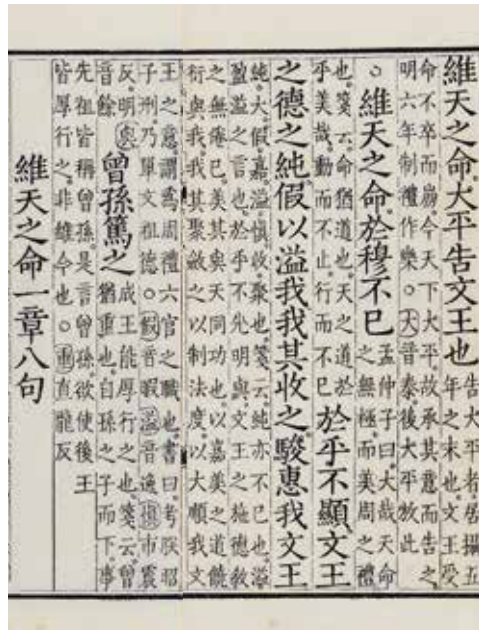 維天之命大平告文王也告大平者居攝五
年之末也文王受
命不卒而崩今天下大平故承其意而告之
明六年制禮作樂○大音泰後大平放此
○維天之命於穆不已孟仲子曰大哉天命
之無極而美周之禮
也箋云命猶道也天之道於
乎美哉動而不止行而不已於乎不顯文王
之德之純假以溢我我其收之駿惠我文王
純大假嘉溢慎收聚也箋云純亦不已也溢
盈溢之言也於乎不光明與文王之施德教
之無倦已美其與天同功也以嘉美之道饒
衍與我我其聚斂之以制法度以大順我文
王之意謂爲周禮六官之職也書曰考朕昭
子刑乃單文祖德○假音暇溢音逸慎市震
反明與
音餘曾孫篤之成王能厚行之也箋云曾
猶重也自孫之子而下事
先祖皆稱曾孫是言曾孫欲使後王
皆厚行之非維今也○重直龍反
維天之命一章八句